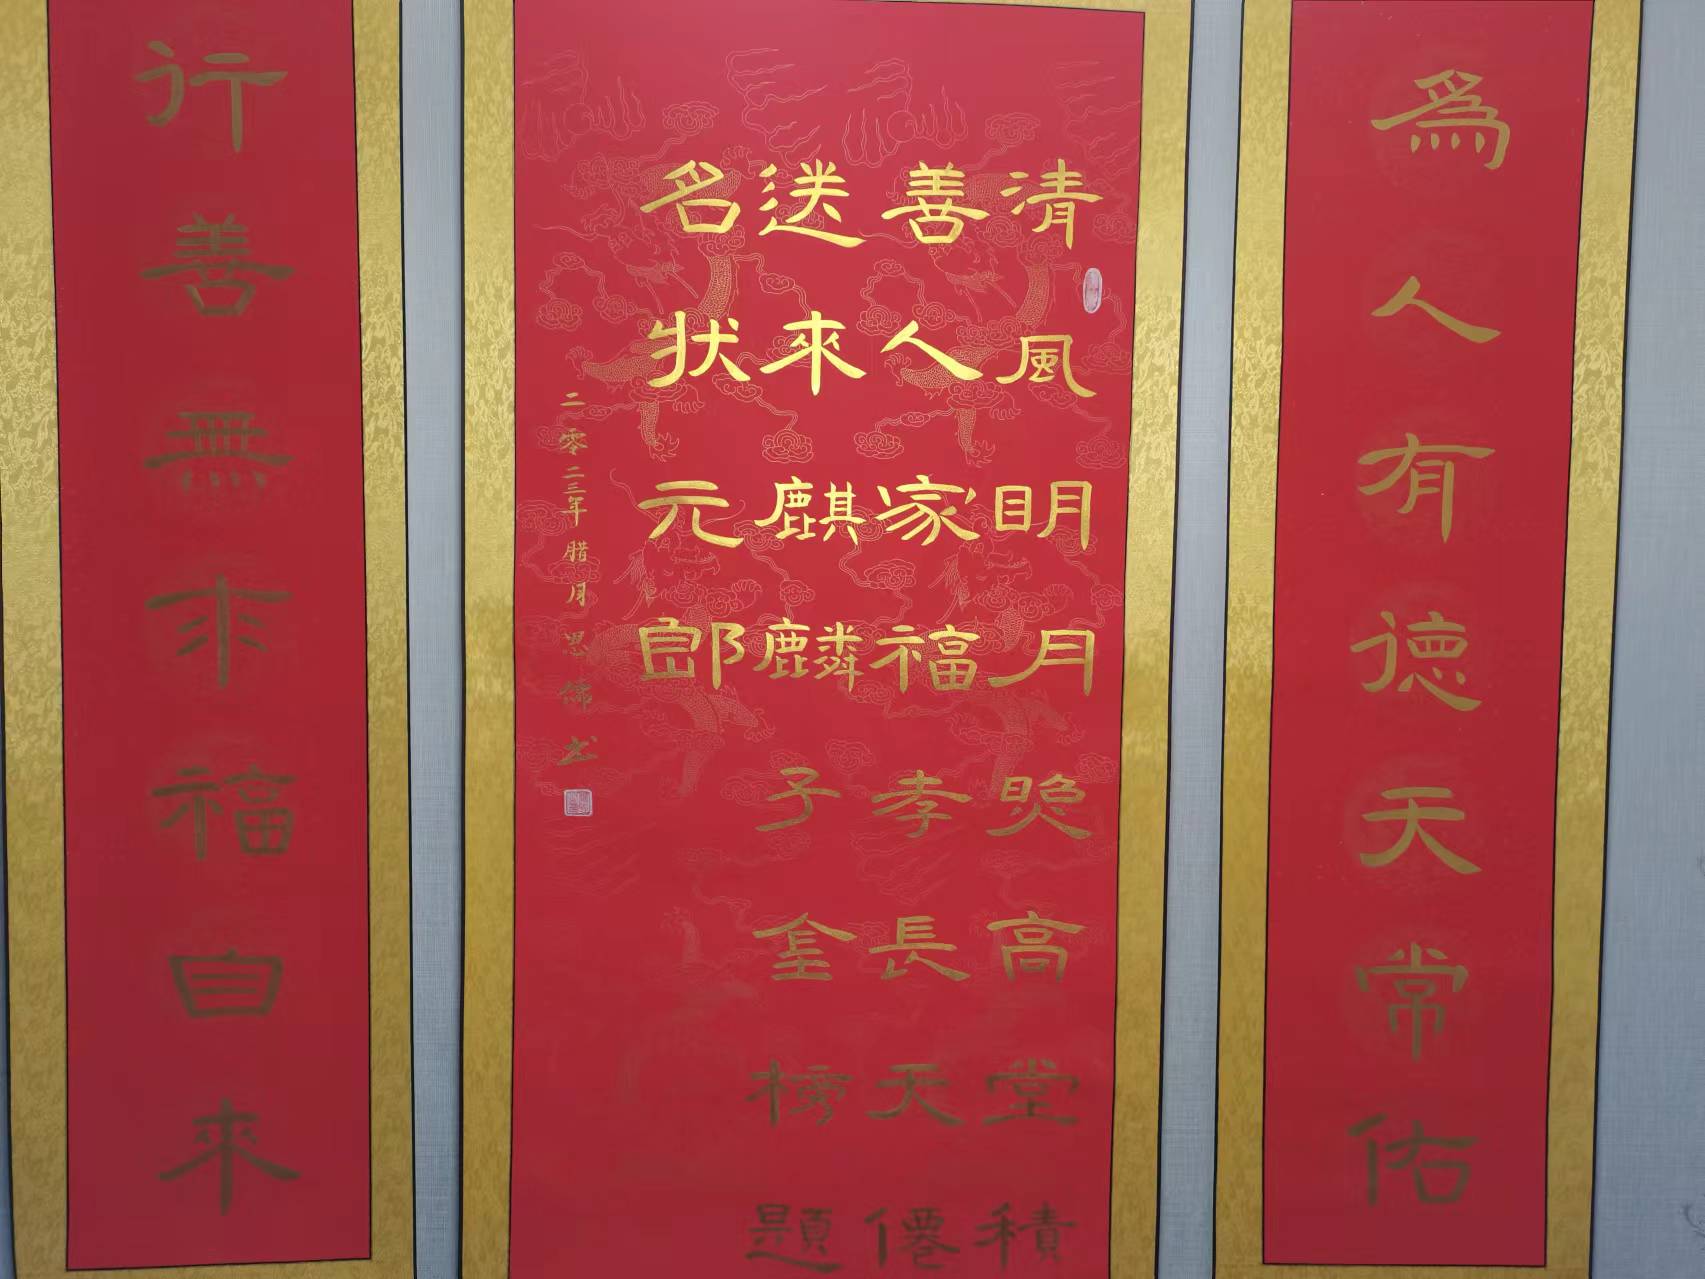 爲人有德天常佑
清風明月照高堂積
善人家福孝長天僊
送來麒麟子金榜題
名狀元郎
二零二三年腊月思佛书
行善無求福自來